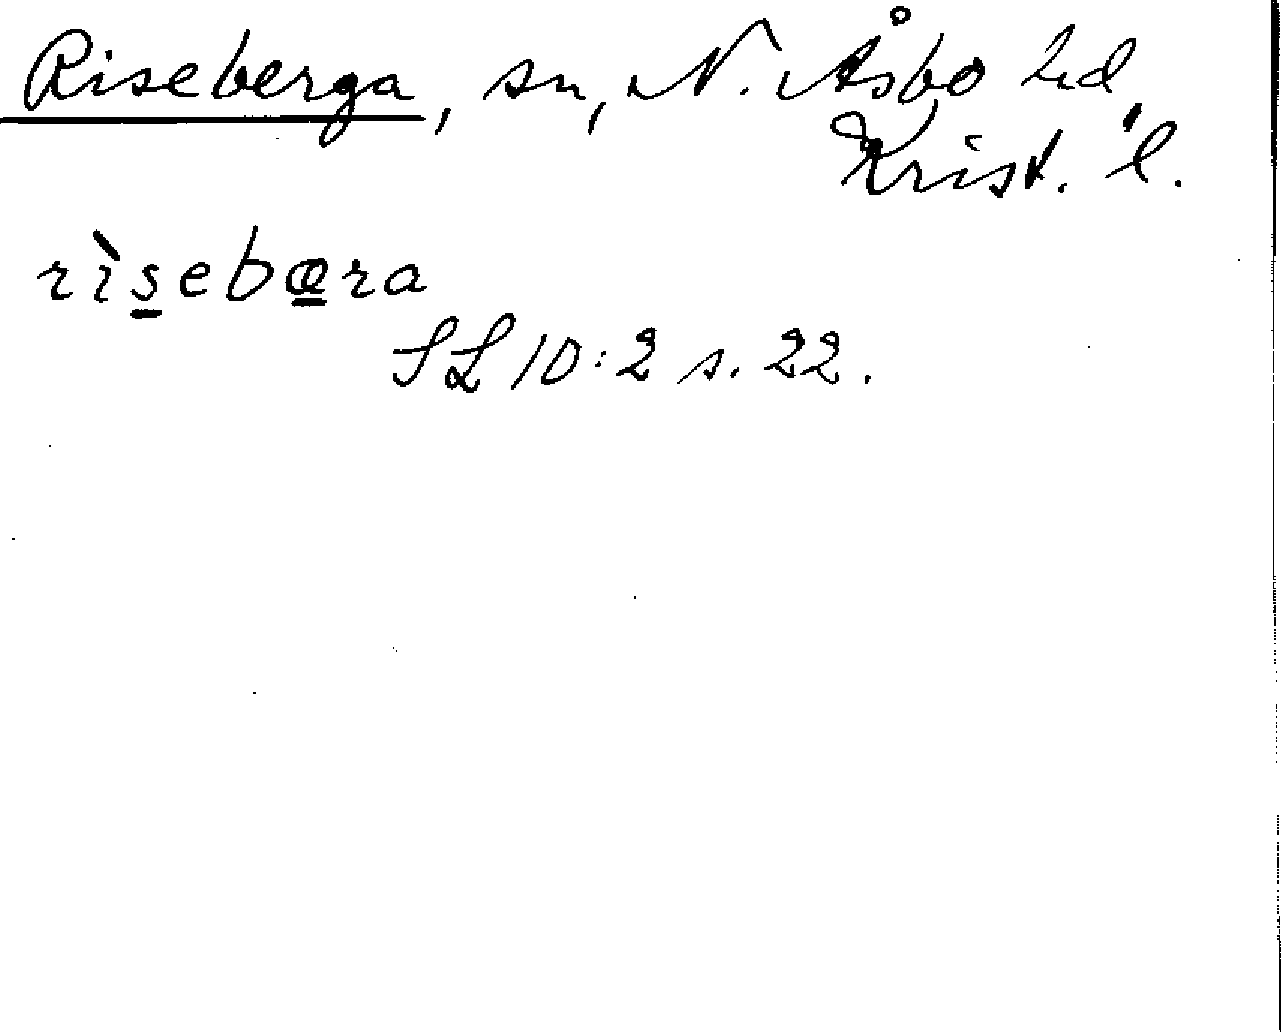 Riseberga, sn, N. Åsbo hd,
Krist. l.
rìsebæra
SL 10:2 s. 22.